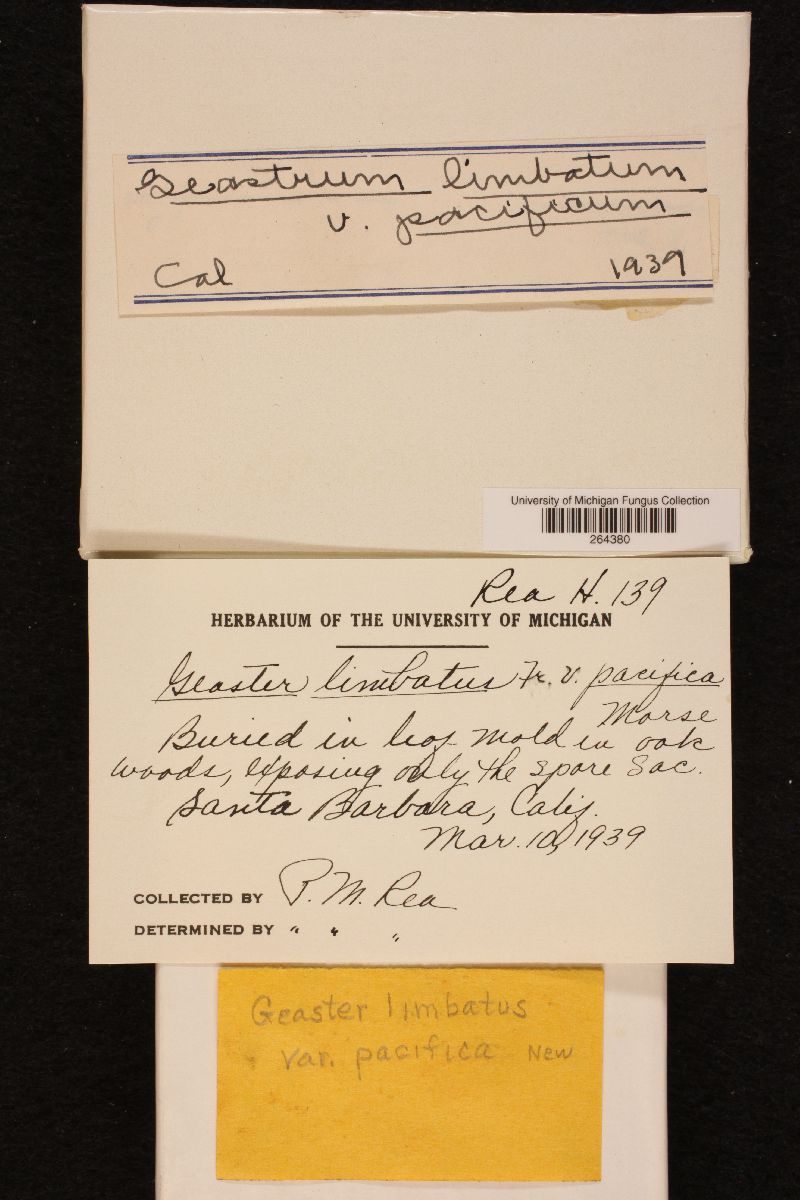 Geastrum limbatum
v. pacificum
Cal 1939
University of Michigan Fungus Collection
264380
Rea H. 139
HERBARIUM OF THE UNIVERSITY OF MICHIGAN
Geaster limbatus Fr. v. pacifica
Morse
Buried in leaf mold in oak
woods, exposing only the spore sac.
Santa Barbara, Calif.
Mar. 10, 1939
COLLECTED BY P. M. Rea
DETERMINED BY " " "
Geaster limbatus
var. pacifica New